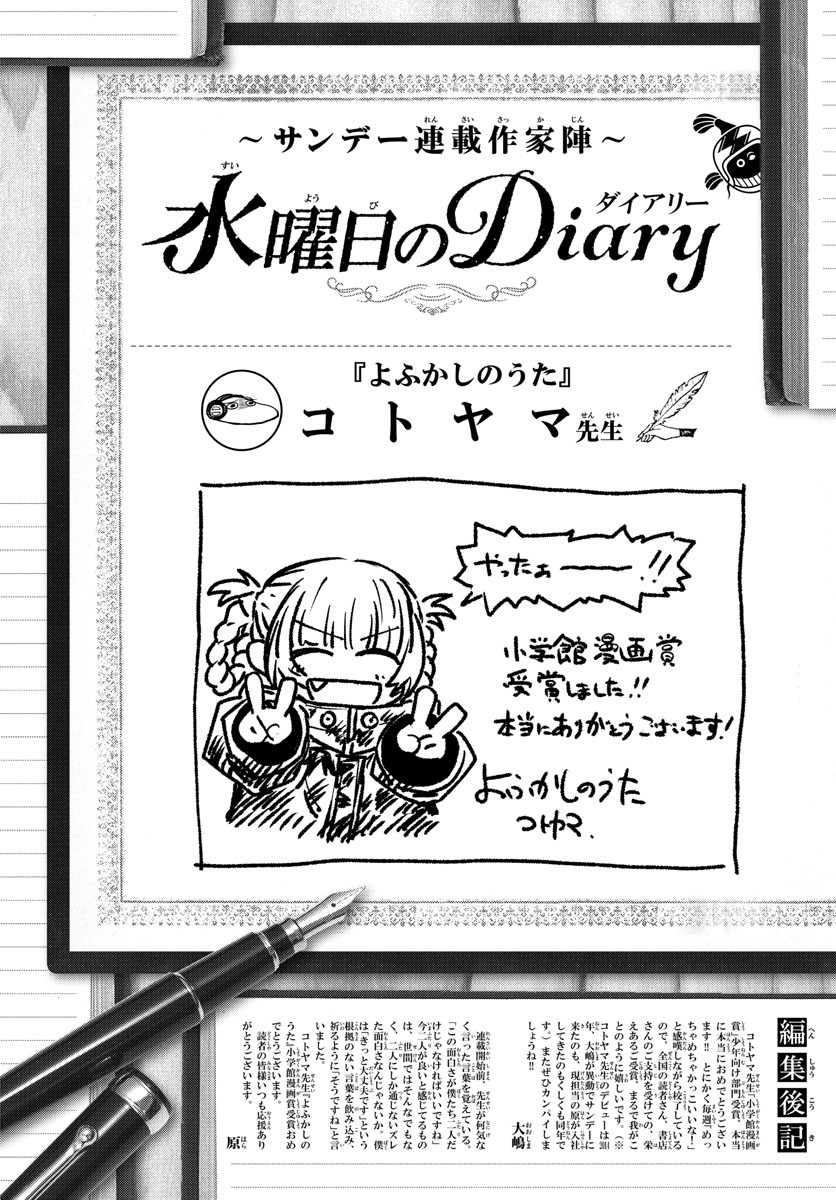 ～サンデー連載作家陣～
水曜日のDiary
ダイアリー
『よふかしのうた』
コトヤマ先生
やったぁ――!!
小学館漫画賞
受賞しました!!
本当にありがとうございます!
よふかしのうた
コトヤマ.
編集後記
コトヤマ先生「小学館漫画
賞」少年向け部門受賞、本当
に本当におめでとうござい
ます!! とにかく毎週「めっ
ちゃめちゃかっこいいな～」
と感嘆しながら校了している
ので、全国の読者さん、書店
さんのご支持を受けての、栄
えあるご受賞、まるで我がこ
とのように嬉しいです。(※
コトヤマ先生のデビューは
年、大嶋が異動でサンデーに
来たのも、現担当の原が入社
してきたのもくしくも同年で
す。)またぜひカンパイしま
しょうね!!
大嶋
連載開始前、先生が何気な
く言った言葉を覚えている。
「この面白さが僕たち二人だ
けじゃなければいいですね」
今二人が良いと感じてるもの
は、世間ではそんなでもな
く、二人にしか通じないズレ
た面白さなんじゃないか。僕
は「きっと大丈夫です」という
根拠のない言葉を飲み込み、
祈るように「そうですね」と言
いました。
コトヤマ先生『よふかしの
うた』小学館漫画賞受賞おめ
でとうございます。
読者の皆様いつも応援あり
がとうございます。
原